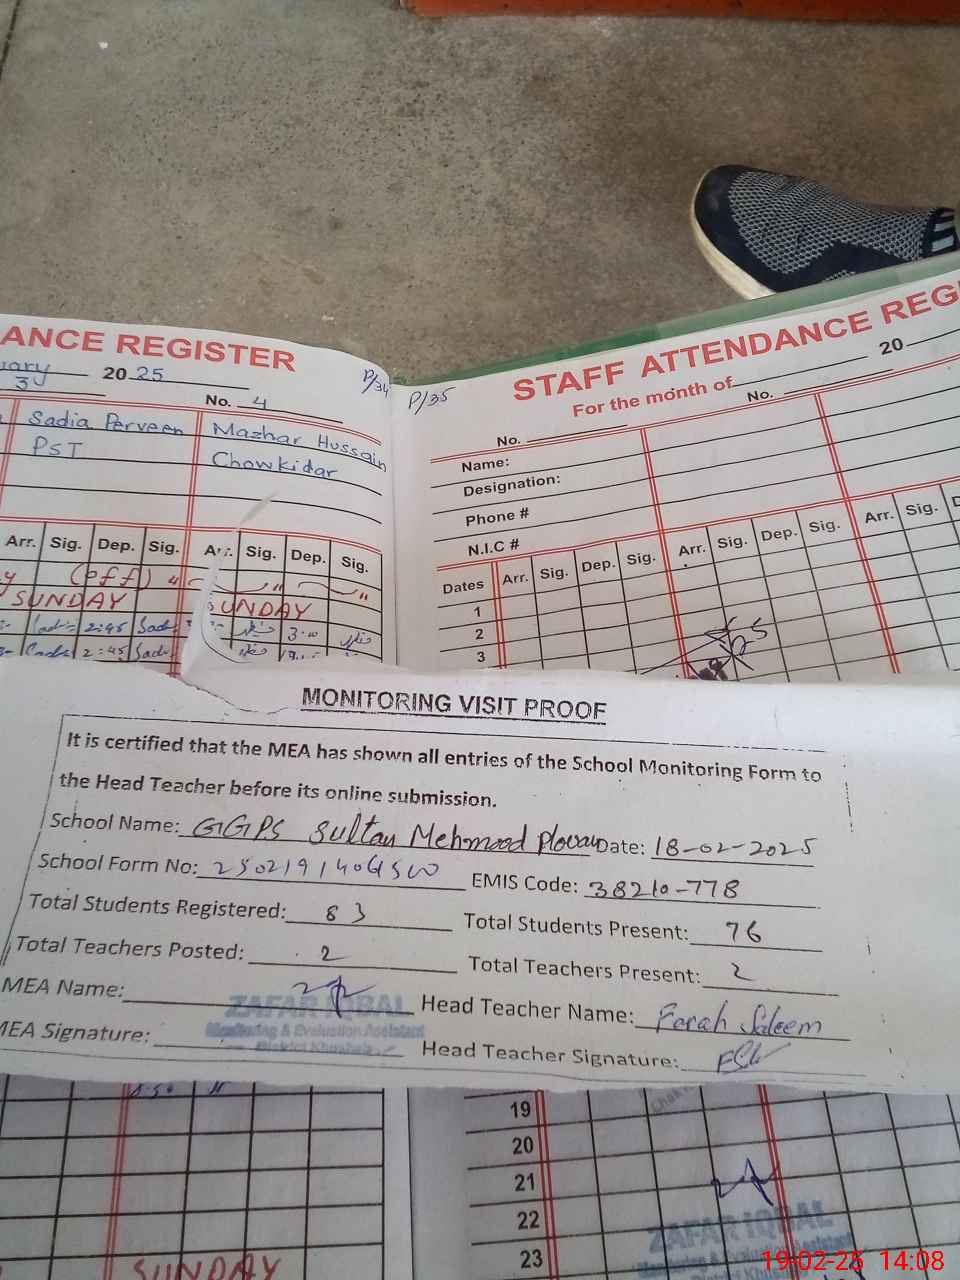 ANCE REGISTER
uary 20 25
3
No. 4
P/34
Sadia Perveen Mazhar Hussain
PST Chowkidar
Arr. Sig. Dep. Sig. Arr. Sig. Dep. Sig.
(off)
SUNDAY SUNDAY
2:45 Sad 3.00
2:45 Sad
P/35
STAFF ATTENDANCE REG
For the month of 20
No. No.
Name:
Designation:
Phone #
N.I.C #
Dates Arr. Sig. Dep. Sig. Arr. Sig. Dep. Sig. Arr. Sig. D
1
2
3
MONITORING VISIT PROOF
It is certified that the MEA has shown all entries of the School Monitoring Form to
the Head Teacher before its online submission.
School Name: GGPS Sultan Mehmood Date: 18-02-2025
School Form No: EMIS Code: 38210-778
Total Students Registered: 83 Total Students Present: 76
Total Teachers Posted: 2 Total Teachers Present: 2
MEA Name: Head Teacher Name: Farah Saleem
ZAFAR IQBAL
Monitoring & Evaluation Assistant
District Khushab
MEA Signature: Head Teacher Signature:
19
20
21
22
23
SUNDAY
ZAFAR IQBAL
Monitoring & Evaluation Assistant
District Khushab
19-02-25 14:08